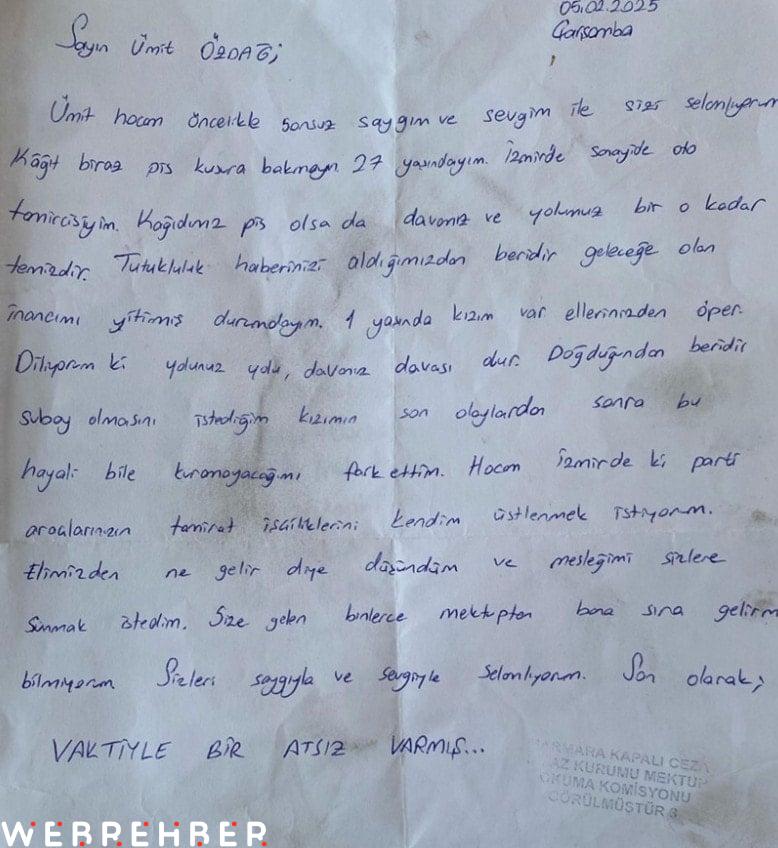 05.02.2025
Çarşamba
Sayın Ümit ÖZDAĞ;
Ümit hocam öncelikle sonsuz saygım ve sevgim ile sizi selamlıyorum
Kâğıt biraz pis kusura bakmayın. 27 yaşındayım. İzmirde sanayide oto
tamircisiyim. Kağıdımız pis olsa da davamız ve yolumuz bir o kadar
temizdir. Tutukluluk haberinizi aldığımızdan beridir geleceğe olan
inancımı yitirmiş durumdayım. 1 yaşında kızım var ellerinizden öper.
Diliyorum ki yolunuz yolu, davanız davası olur. Doğduğundan beridir
subay olmasını istediğim kızımın son olaylardan sonra bu
hayali bile kuramayacağımı fark ettim. Hocam İzmirde ki parti
araçlarınızın tamirat işçiliklerini kendim üstlenmek istiyorum.
Elimizden ne gelir diye düşündüm ve mesleğimi sizlere
sunmak istedim. Size gelen binlerce mektuptan bana sıra gelirmi
bilmiyorum. Sizleri saygıyla ve sevgiyle selamlıyorum. Son olarak;
VAKTİYLE BİR ATSIZ VARMIŞ...
MARMARA KAPALI CEZA
İNFAZ KURUMU MEKTUP
OKUMA KOMİSYONU
GÖRÜLMÜŞTÜR
WEBREHBER